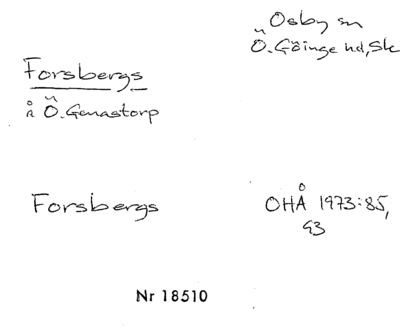 Osby sn
Ö. Göinge hd, Sk
Forsbergs
å Ö. Genastorp
Forsbergs
OHÅ 1973:85,
93
Nr 18510